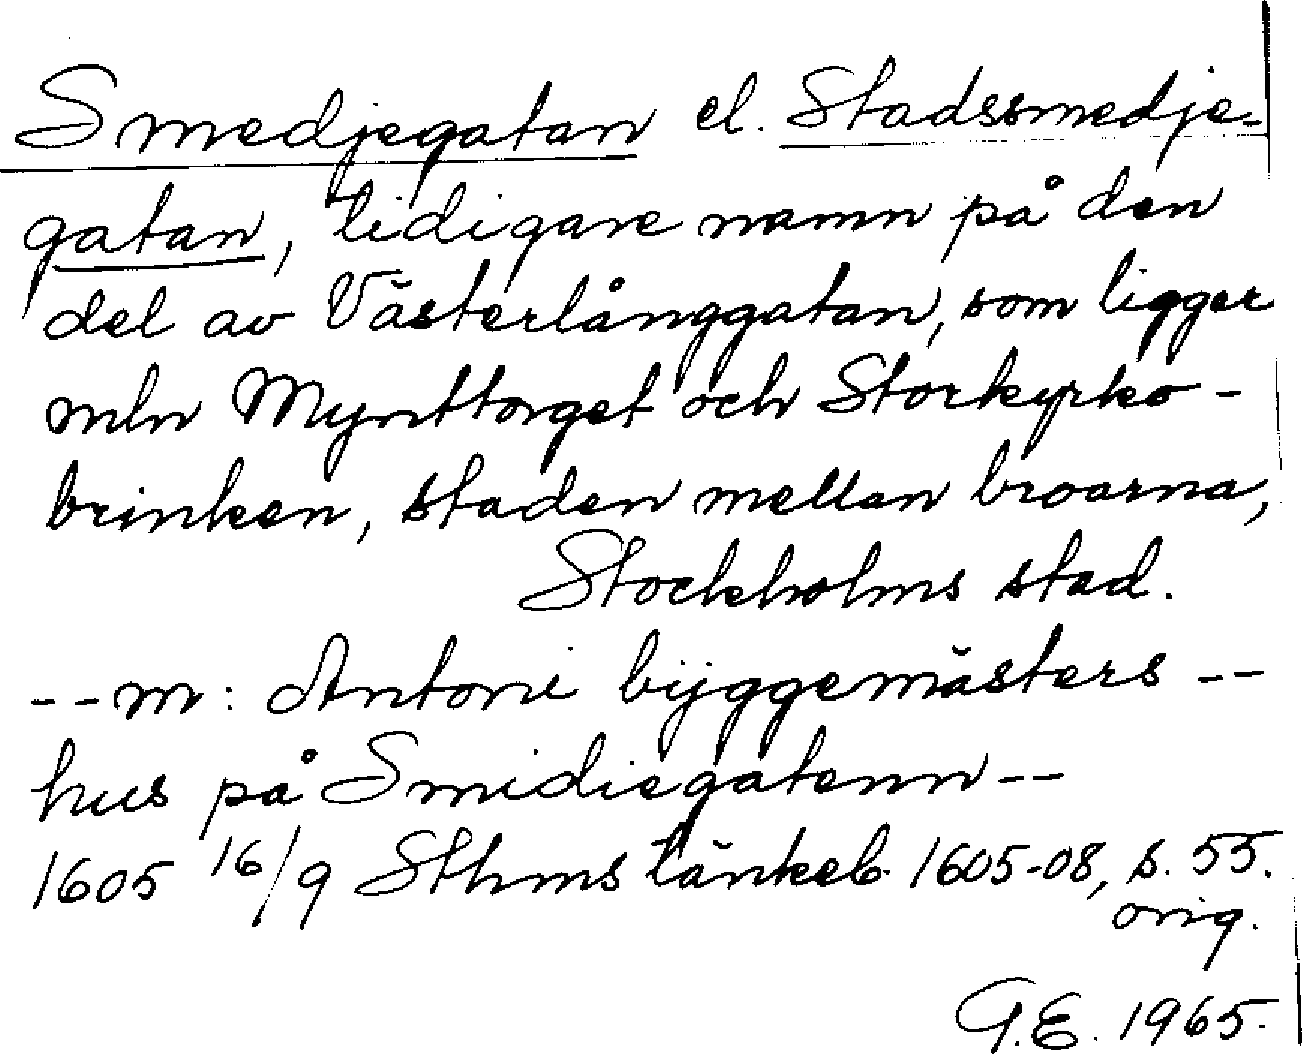 Smedjegatan el. Stadssmedje-
gatan, tidigare namn på den
del av Västerlånggatan, som ligger
mln Mynttorget och Storkyrko-
brinken, staden mellan broarna,
Stockholms stad.
--m: Antoni byggemästers --
hus på Smidiegatenn--
1605 16/9 Sthms tänkeb. 1605-08, s. 55.
orig.
G.E. 1965.